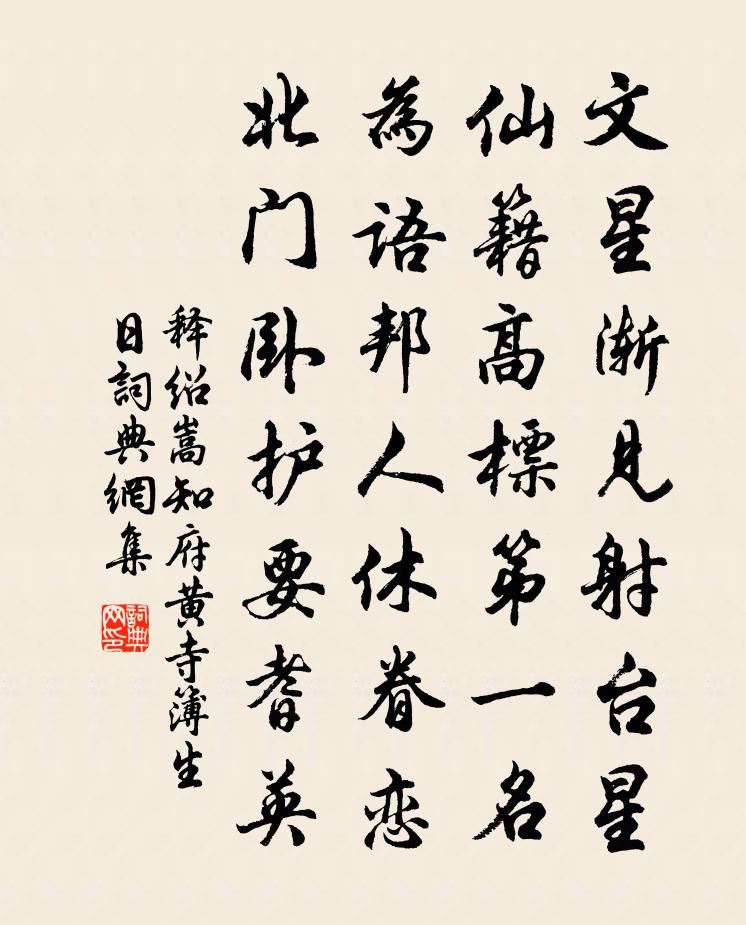 文星渐见射台星
仙籍高標第一名
為語邦人休眷恋
北门卧护要耆英
释绍嵩知府黄寺簿生
日詞典網集
詞典
网印